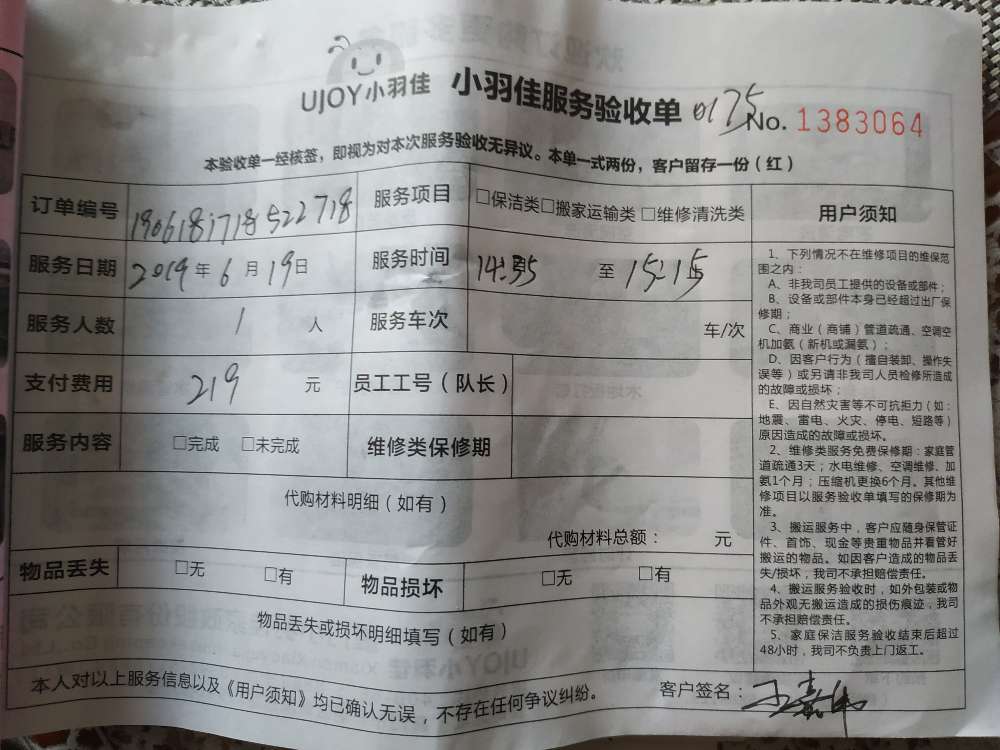 UJOY小羽佳
小羽佳服务验收单 0175 No. 1383064
本验收单一经核签，即视为对本次服务验收无异议。本单一式两份，客户留存一份（红）
订单编号 190618171852271​8 服务项目 □保洁类□搬家运输类 □维修清洗类
服务日期 2019年6月19日 服务时间 14:35 至 15:15
服务人数 1 人 服务车次 车/次
支付费用 219 元 员工工号（队长）
服务内容 □完成 □未完成 维修类保修期
代购材料明细（如有）
代购材料总额： 元
物品丢失 □无 □有 物品损坏 □无 □有
物品丢失或损坏明细填写（如有）
本人对以上服务信息以及《用户须知》均已确认无误，不存在任何争议纠纷。
客户签名：
用户须知
1、下列情况不在维修项目的维保范
围之内：
A、非我司员工提供的设备或部件；
B、设备或部件本身已经超过出厂保
修期；
C、商业（商铺）管道疏通、空调空
机加氨（新机或漏氨）；
D、因客户行为（擅自装卸、操作失
误等）或另请非我司人员检修所造成
的故障或损坏；
E、因自然灾害等不可抗拒力（如：
地震、雷电、火灾、停电、短路等）
原因造成的故障或损坏。
2、维修类服务免费保修期：家庭管
道疏通3天；水电维修、空调维修、加
氨1个月；压缩机更换6个月。其他维
修项目以服务验收单填写的保修期为
准。
3、搬运服务中，客户应随身保管证
件、首饰、现金等贵重物品并看管好
搬运的物品。如因客户造成的物品丢
失/损坏，我司不承担赔偿责任。
4、搬运服务验收时，如外包装或物
品外观无搬运造成的损伤痕迹，我司
不承担赔偿责任。
5、家庭保洁服务验收结束后超过
48小时，我司不负责上门返工。